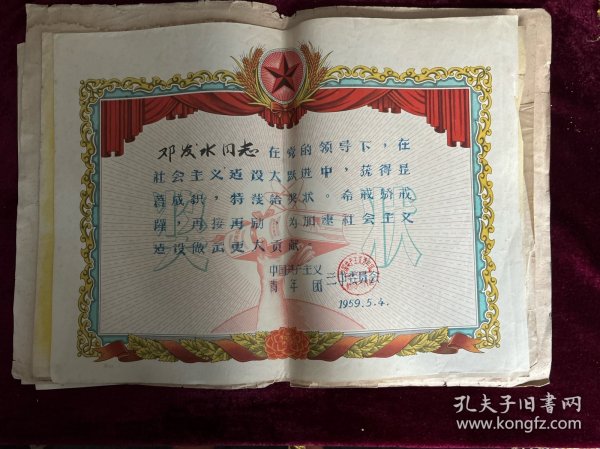 邓发水同志在党的领导下，在
社会主义建设大跃进中，获得显
著成绩，特发给奖状。希戒骄戒
躁，再接再励，为加速社会主义
建设做出更大贡献。
奖状
中国共产主义
青年团
委员会
1959.5.4.
孔夫子旧书网
www.kongfz.com